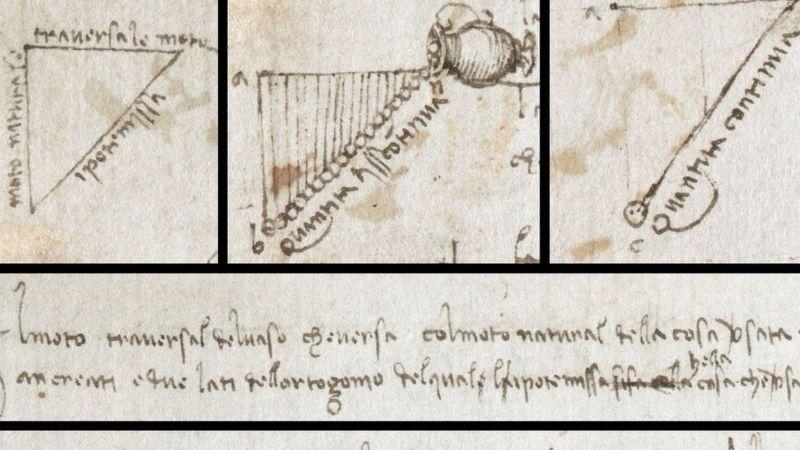 traversale moto
moto naturale
ipotemissa
a
b
Quantita continua
a
c
Quantita continua
lmoto traversal delvaso cheversa colmoto natural della cosa versata
an creati e due lati dellortogomo delquale lipotemissa